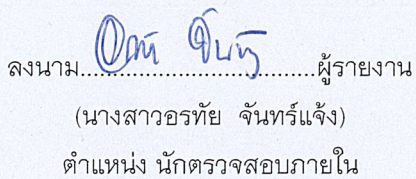 ลงนาม........................................ผู้รายงาน
(นางสาวอรทัย จันทร์แจ้ง)
ตำแหน่ง นักตรวจสอบภายใน